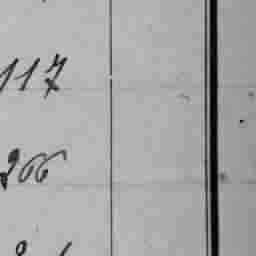 117
266